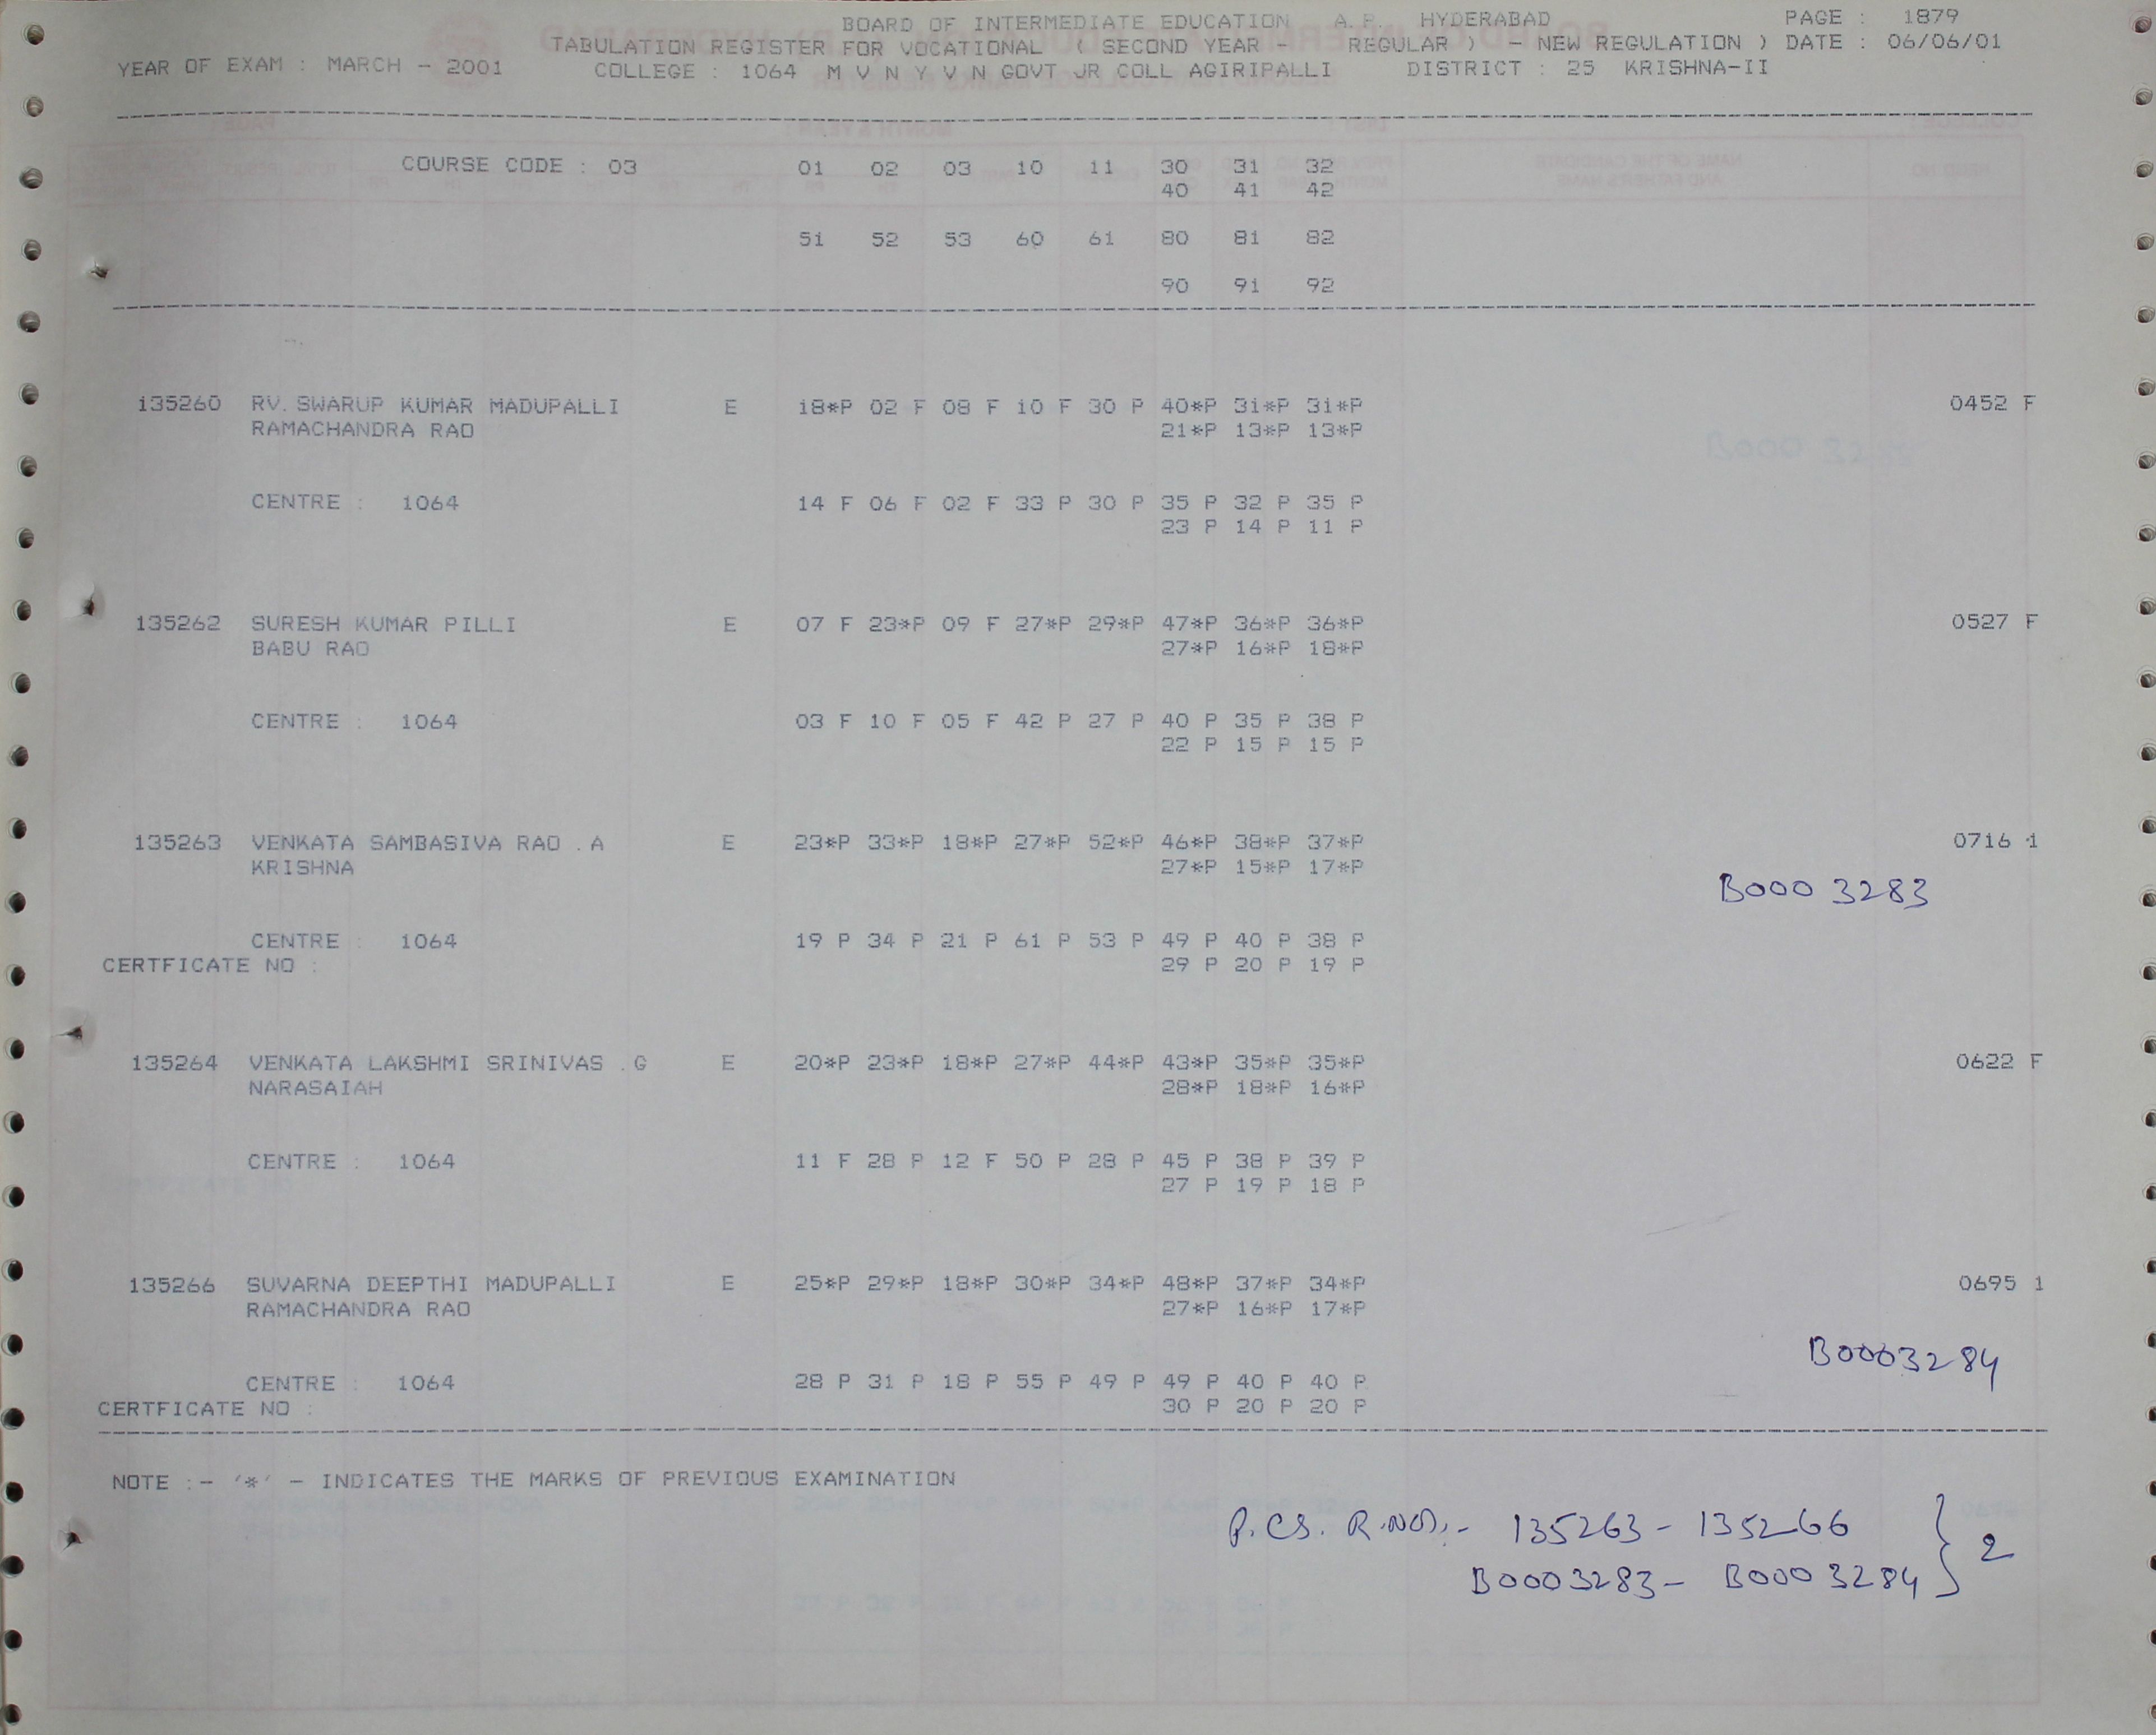 BOARD OF INTERMEDIATE EDUCATION A.P. HYDERABAD PAGE : 1879
TABULATION REGISTER FOR VOCATIONAL ( SECOND YEAR - REGULAR ) - NEW REGULATION ) DATE : 06/06/01
YEAR OF EXAM : MARCH - 2001 COLLEGE : 1064 M V N Y V N GOVT JR COLL AGIRIPALLI DISTRICT : 25 KRISHNA-II
COURSE CODE : 03 01 02 03 10 11 30 31 32
40 41 42
51 52 53 60 61 80 81 82
90 91 92
135260 RV.SWARUP KUMAR MADUPALLI E 18*P 02 F 08 F 10 F 30 P 40*P 31*P 31*P 0452 F
RAMACHANDRA RAO 21*P 13*P 13*P
CENTRE : 1064 14 F 06 F 02 F 33 P 30 P 35 P 32 P 35 P
23 P 14 P 11 P
135262 SURESH KUMAR PILLI E 07 F 23*P 09 F 27*P 29*P 47*P 36*P 36*P 0527 F
BABU RAO 27*P 16*P 18*P
CENTRE : 1064 03 F 10 F 05 F 42 P 27 P 40 P 35 P 38 P
22 P 15 P 15 P
135263 VENKATA SAMBASIVA RAO .A E 23*P 33*P 18*P 27*P 52*P 46*P 38*P 37*P 0716 1
KRISHNA 27*P 15*P 17*P
B000 3283
CENTRE : 1064 19 P 34 P 21 P 61 P 53 P 49 P 40 P 38 P
CERTFICATE NO : 29 P 20 P 19 P
135264 VENKATA LAKSHMI SRINIVAS .G E 20*P 23*P 18*P 27*P 44*P 43*P 35*P 35*P 0622 F
NARASAIAH 28*P 18*P 16*P
CENTRE : 1064 11 F 28 P 12 F 50 P 28 P 45 P 38 P 39 P
27 P 19 P 18 P
135266 SUVARNA DEEPTHI MADUPALLI E 25*P 29*P 18*P 30*P 34*P 48*P 37*P 34*P 0695 1
RAMACHANDRA RAO 27*P 16*P 17*P
B0003284
CENTRE : 1064 28 P 31 P 18 P 55 P 49 P 49 P 40 P 40 P
CERTFICATE NO : 30 P 20 P 20 P
NOTE :- '*' - INDICATES THE MARKS OF PREVIOUS EXAMINATION
P.CS. R.NOs.- 135263 - 135266 } 2
B0003283 - B000 3284